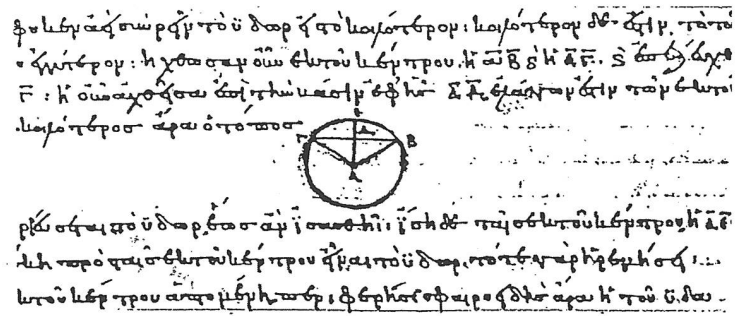 τὸ ὕδωρ εἰς τὸ κοιλότερον: κοιλότερον δέ ἐστιν τὸ το
ἐγγύτερον: ἤχθωσαν οὖν ἐκ τοῦ κέντρου. ἡ ΑΒ καὶ ἡ ΑΓ. καὶ ἐπεζεύχθ
Γ: ἡ οὖν ἀχθεῖσα ἐπὶ τὴν βάσιν ἐφ' ἧς ΑΔ, ἐλάττων ἐστιν τῶν ἐκ τοῦ
κοιλότερος ἄρα ὁ τόπος
Ε
Δ
Γ Β
Α
ρεύσεται τὸ ὕδωρ ἕως ἂν ἰσασθῆι: ἴση δὲ ταῖς ἐκ τοῦ κέντρου ἡ ΑΕ
κη πρὸ ταῖς ἐκ τοῦ κέντρου εἶναι τὸ ὕδωρ. τότε γὰρ ἠρεμήσει:
κ τοῦ κέντρου ἁπτομένη περιφερής σφαιροειδὴς ἄρα ἡ τοῦ ὕδα